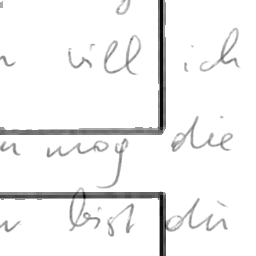 will ich
mag die
bist du